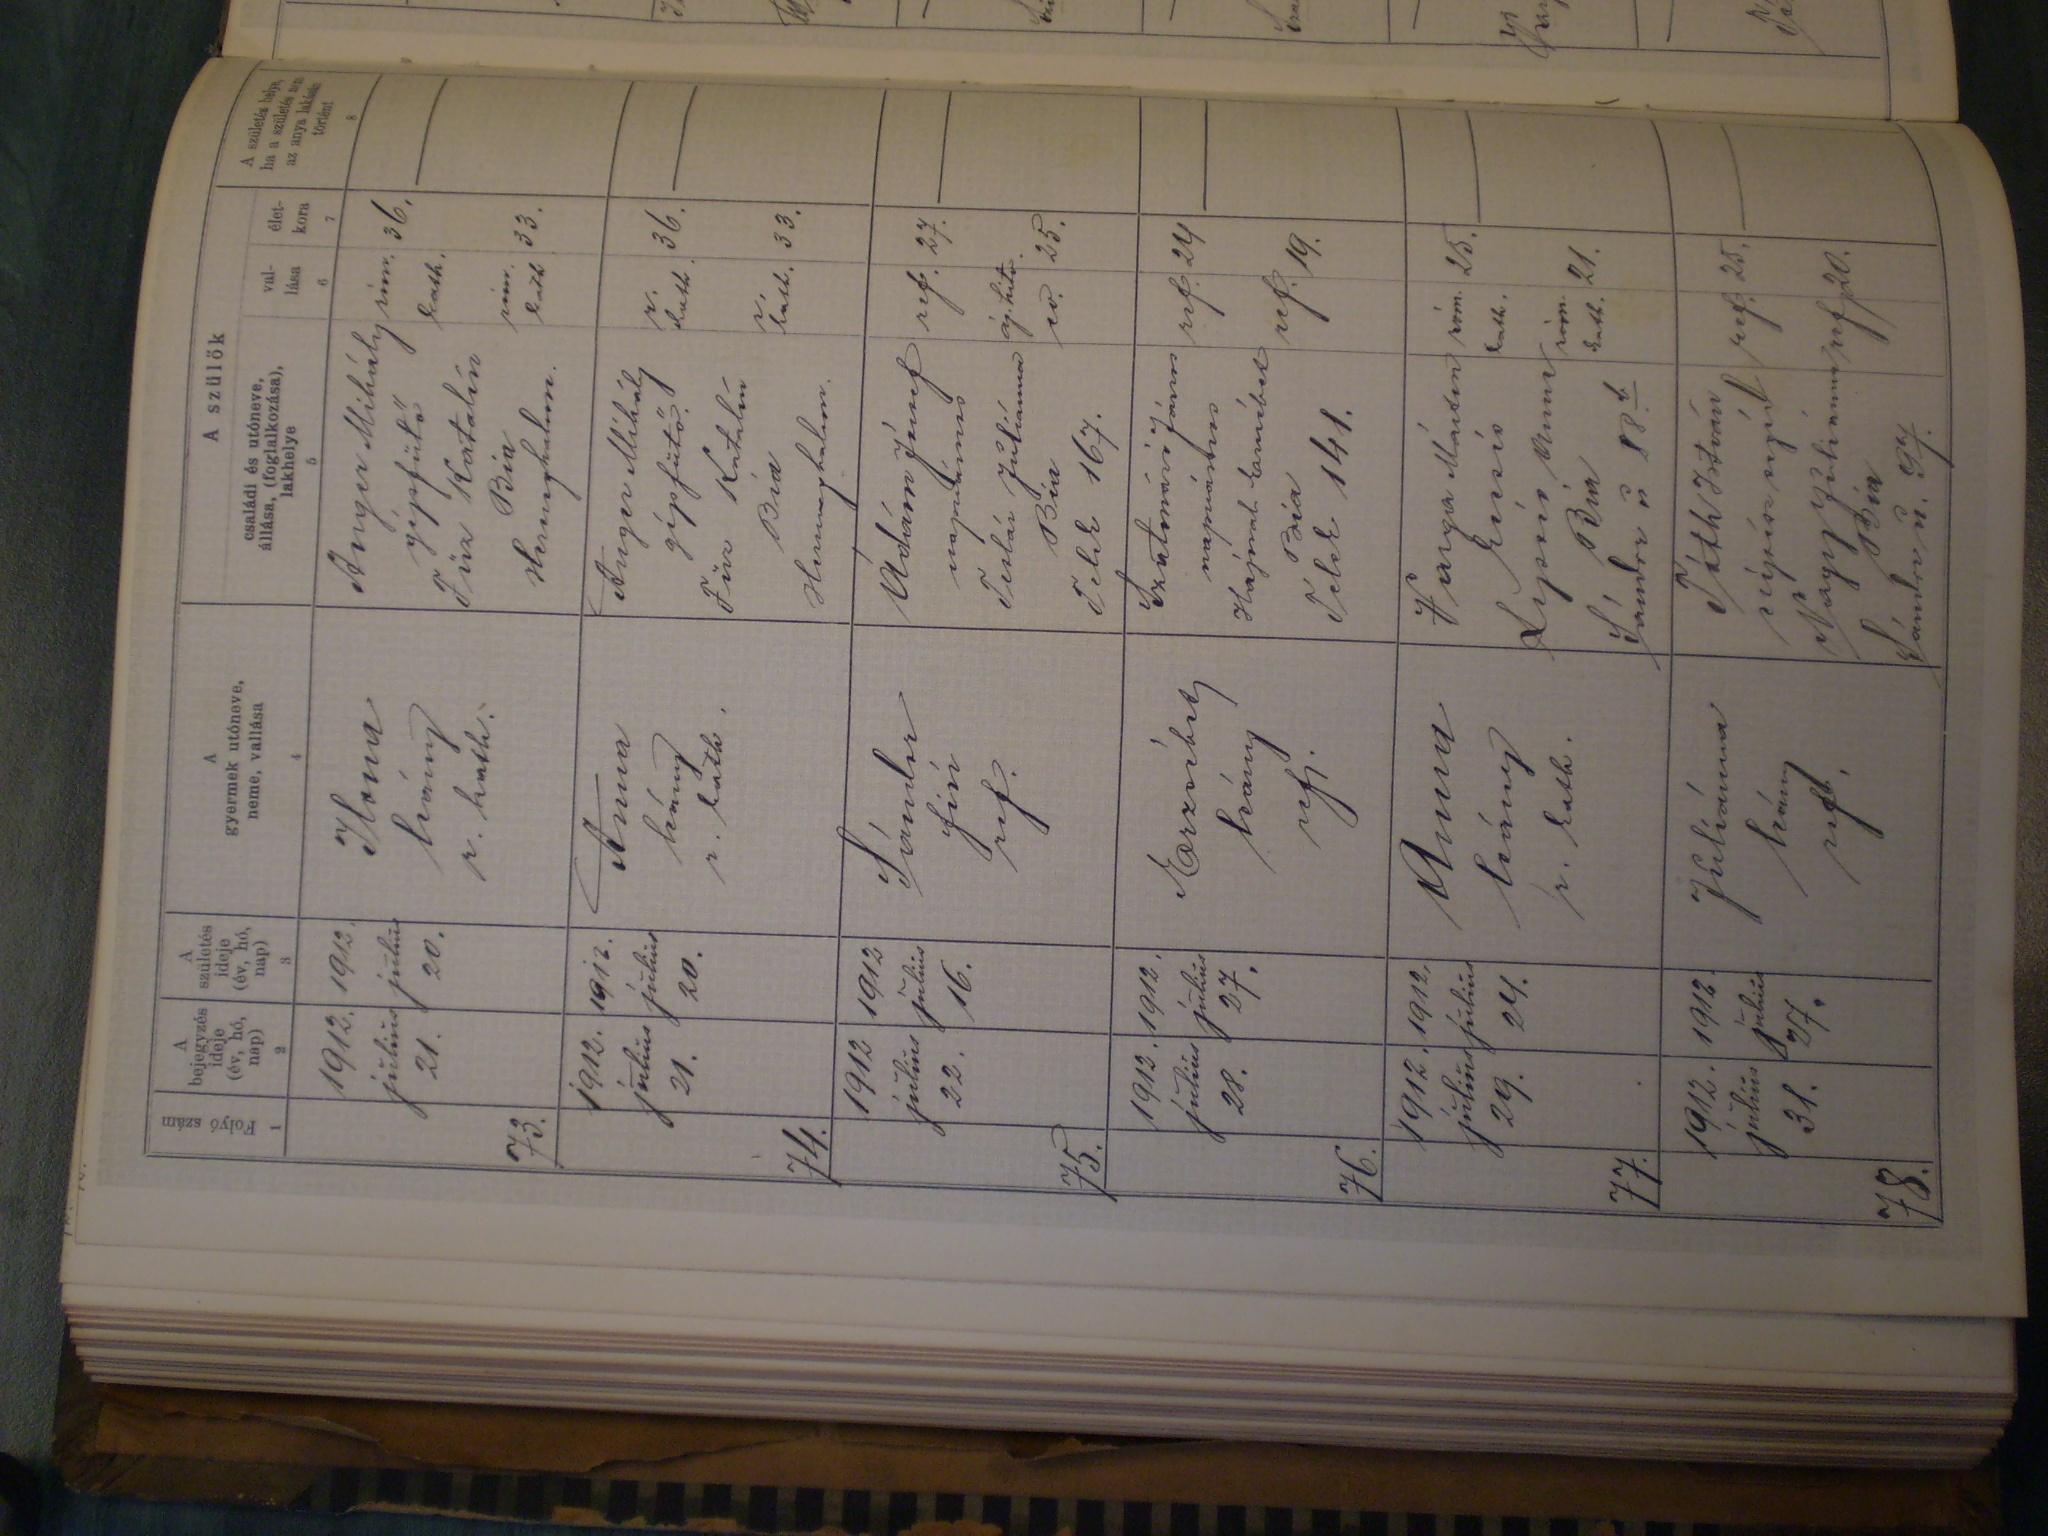 Folyó szám
A bejegyzés ideje (év, hó, nap)
A születés ideje (év, hó, nap)
A gyermek utóneve, neme, vallása
A szülők
családi és utóneve, állása, (foglalkozása), lakhelye
vallása
életkora
A születés helye, ha a születés nem az anya lakásán történt
1 2 3 4 5 6 7 8
73.
1912. július 21.
1912. július 20.
Ilona
leány
r. kath.
Unger Mihály
gépfűtő
Füz Katalin
Bia
róm. kath. 36.
róm. kath. 33.
74.
1912. július 21.
1912. július 20.
Anna
leány
r. kath.
Unger Mihály
gépfűtő
Füz Katalin
Bia
r. kath. 36.
r. kath. 33.
75.
1912 július 22.
1912 július 16.
Sándor
fiú
ref.
Ádám József
napszámos
Juliánna
Bia
Telek 167.
ref. 27.
ág. hitv. ev. 25.
76.
1912. július 28.
1912. július 27.
Erzsébet
leány
ref.
Szatmári János
napszámos
Hajnal Erzsébet
Bia
Telek 141.
ref. 24
ref. 19.
77.
1912. július 29.
1912. július 24.
Anna
leány
r. kath.
Varga Márton
Anna
Bia
Sándor u 88
róm. kath. 25.
róm. kath. 21.
78.
1912. július 31.
1912 július 27.
Juliánna
leány
ref.
Tóth István
cipész segéd
Nagy Juliánna
Bia
Sándor u. 97.
ref. 25.
ref 20.